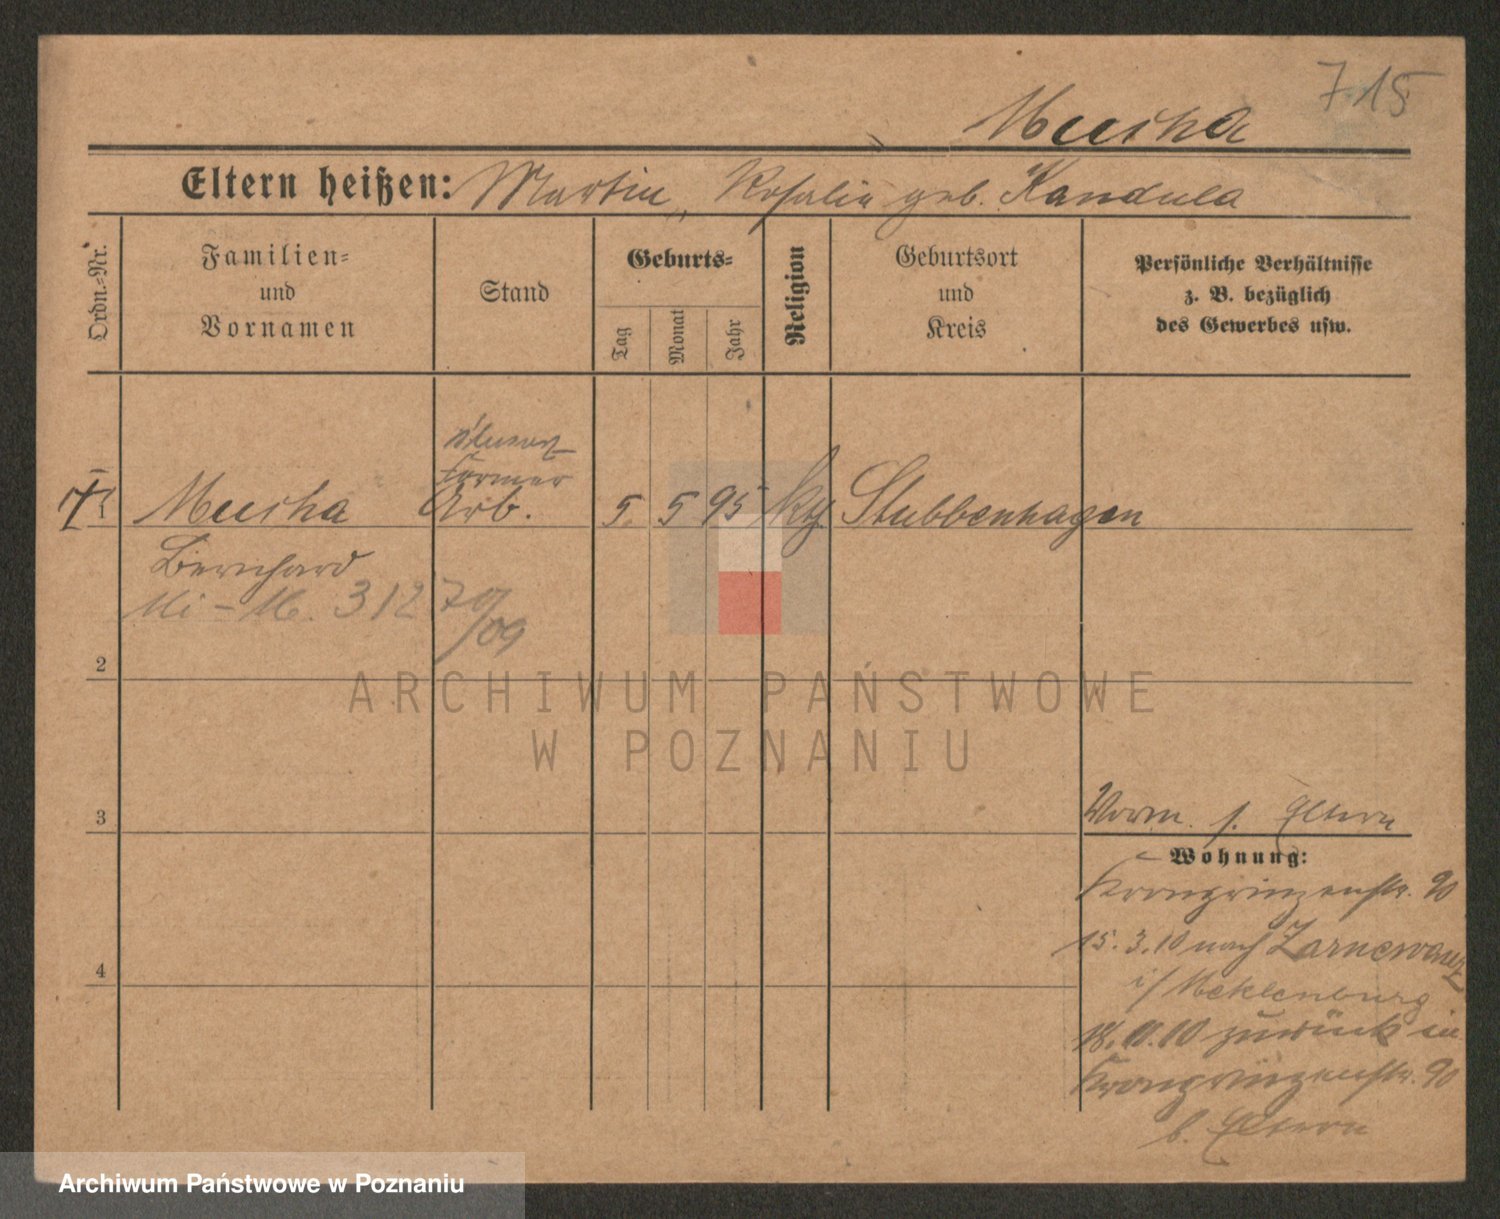 715
Mucha
Eltern heißen: Martin, Rosalie geb. Kandula
Ordn.-Nr.
Familien-
und
Vornamen
Stand
Geburts-
Tag
Monat
Jahr
Religion
Geburtsort
und
Kreis
Persönliche Verhältnisse
z. B. bezüglich
des Gewerbes usw.
Former
Mucha Arb. 5. 5 95 kth Stubbenhagen
Bernhard
312 70/09
2
ARCHIWUM PAŃSTWOWE
W POZNANIU
3
Vorm. s. Eltern
Wohnung:
Kronprinzenstr. 90
15.3.10 nach Zarnewanz
i/ Meklenburg
18.11.10 zurück in
Kronprinzenstr. 90
b. Eltern
4
Archiwum Państwowe w Poznaniu